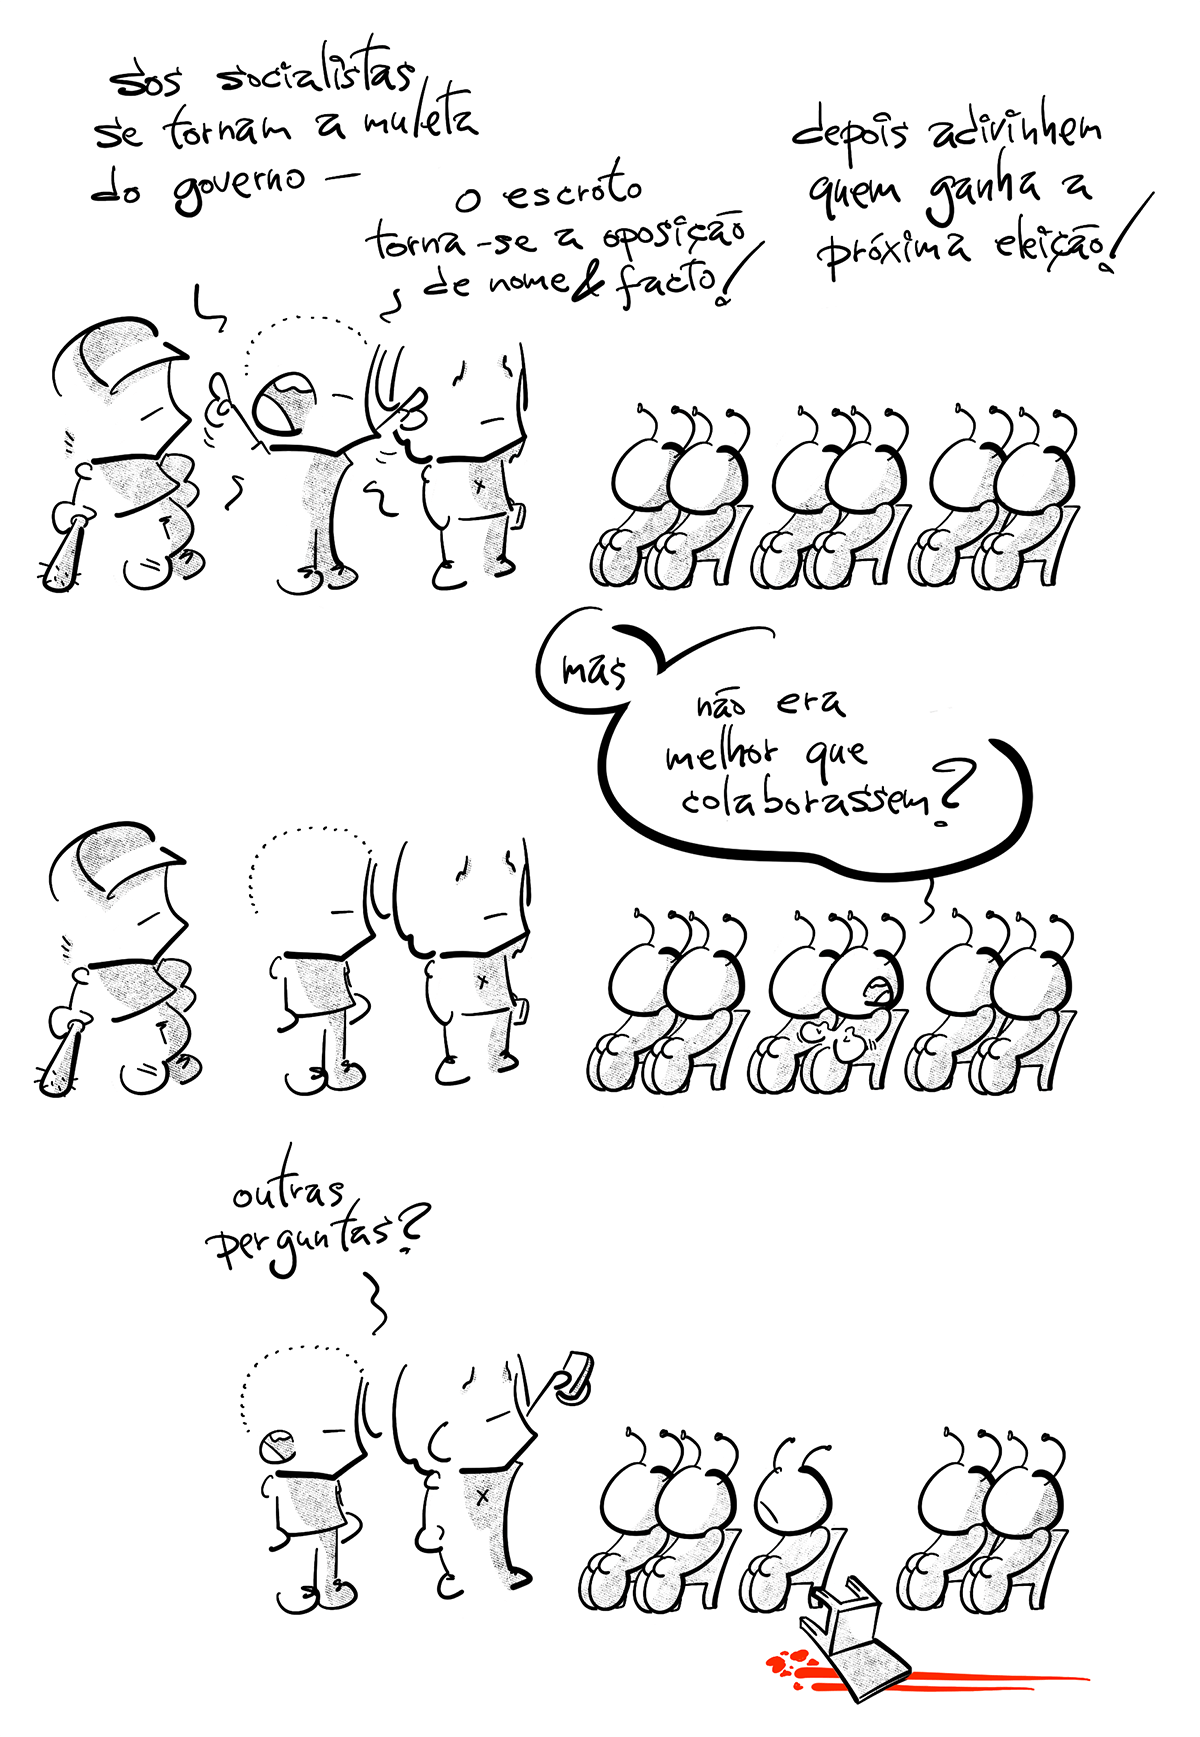 sos socialistas
se tornam a muleta
do governo —
o escroto
torna-se a oposição
de nome & facto!
depois adivinhem
quem ganha a
próxima eleição!
mas
não era
melhor que
colaborassem?
outras
perguntas?